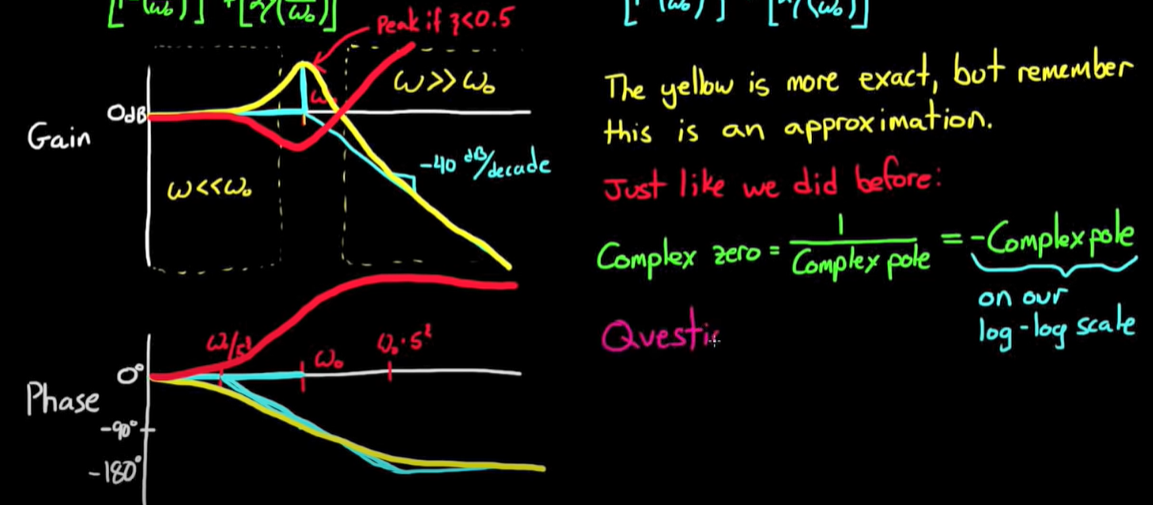 Peak if ζ<0.5
0dB
ω>>ω₀
Gain
-40 dB/decade
ω<<ω₀
ω₀·5^ζ
ω₀
0°
Phase
-90°
-180°
The yellow is more exact, but remember
this is an approximation.
Just like we did before:
Complex zero = 1/Complex pole = -Complex pole
on our
log-log scale
Questi